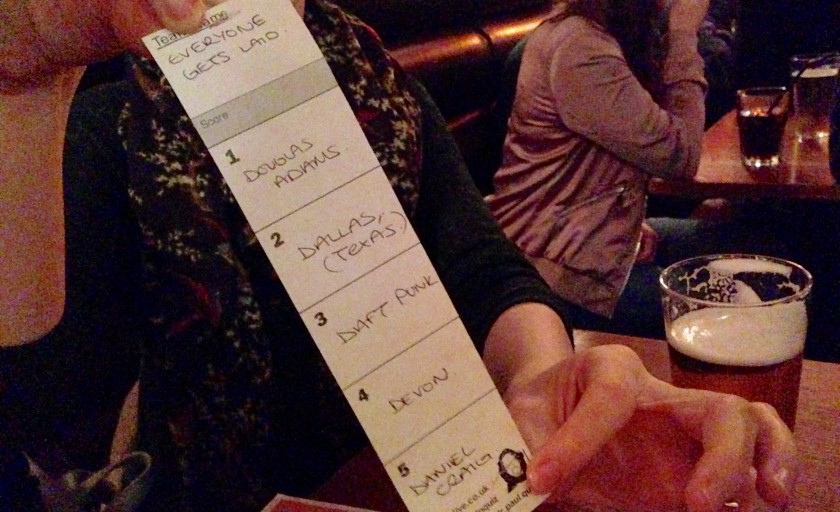 Team Name
EVERYONE
GETS LAID.
Score
1
DOUGLAS
ADAMS
2
DALLAS,
(TEXAS.)
3
DAFT PUNK
4
DEVON.
5
DANIEL
CRAIG